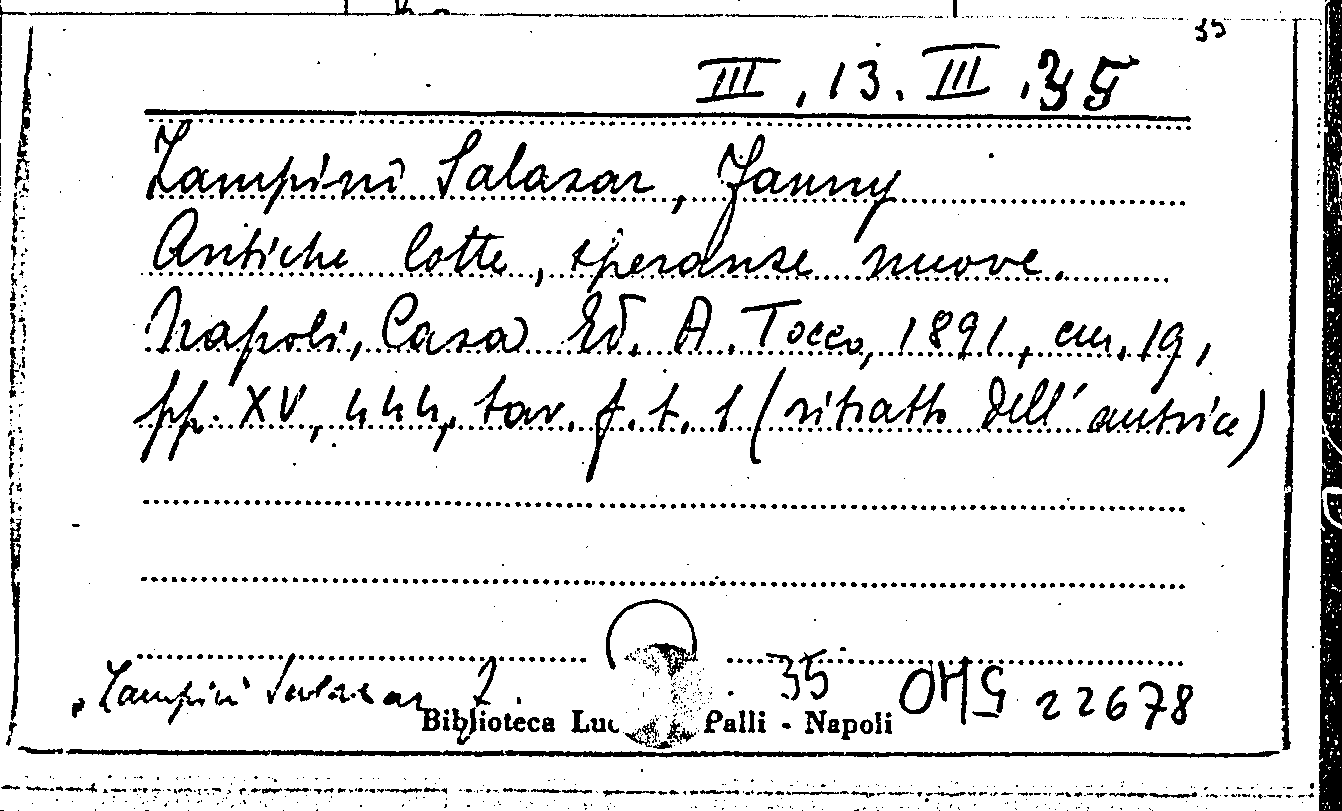 35
III. 13. III. 35
Zampini Salazar, Fanny
Antiche lotte, speranze nuove.
Napoli, Casa Ed. A. Tocco, 1891, cm. 19,
pp. XV, 444, tav. f. t. 1 (ritratto dell'autrice)
Zampini Salazar F. 35 OMG 22678
Biblioteca Luc Palli - Napoli